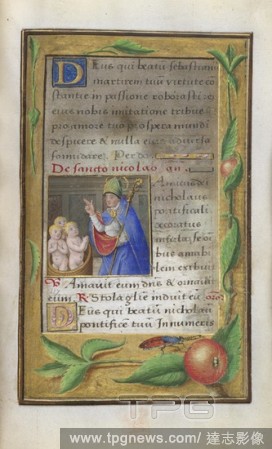 Deus qui beatū sebastianū
martirem tuū virtute cō
stantie in passione roborasti: ex
eius nobis imitatione tribue
pro amore tuo prospera mundi
despicere & nulla eius aduersa
formidare. Per dn̄
De sancto nicolao an
nicholaus
pontificali
decoratus
infula
bus
Amauit eum dn̄s & ornauit
eum. R Stola glie induit eū
Deus qui beatū nicholaū
pontificē tuū Innumeris
TPG
www.tpgnews.com/達志影像